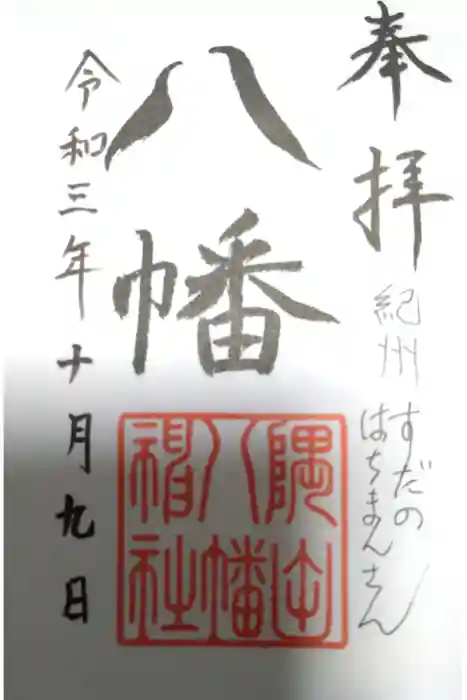 奉拝
紀州
すだの
はちまんさん
八幡
隅田
八幡
神社
令和三年十月九日